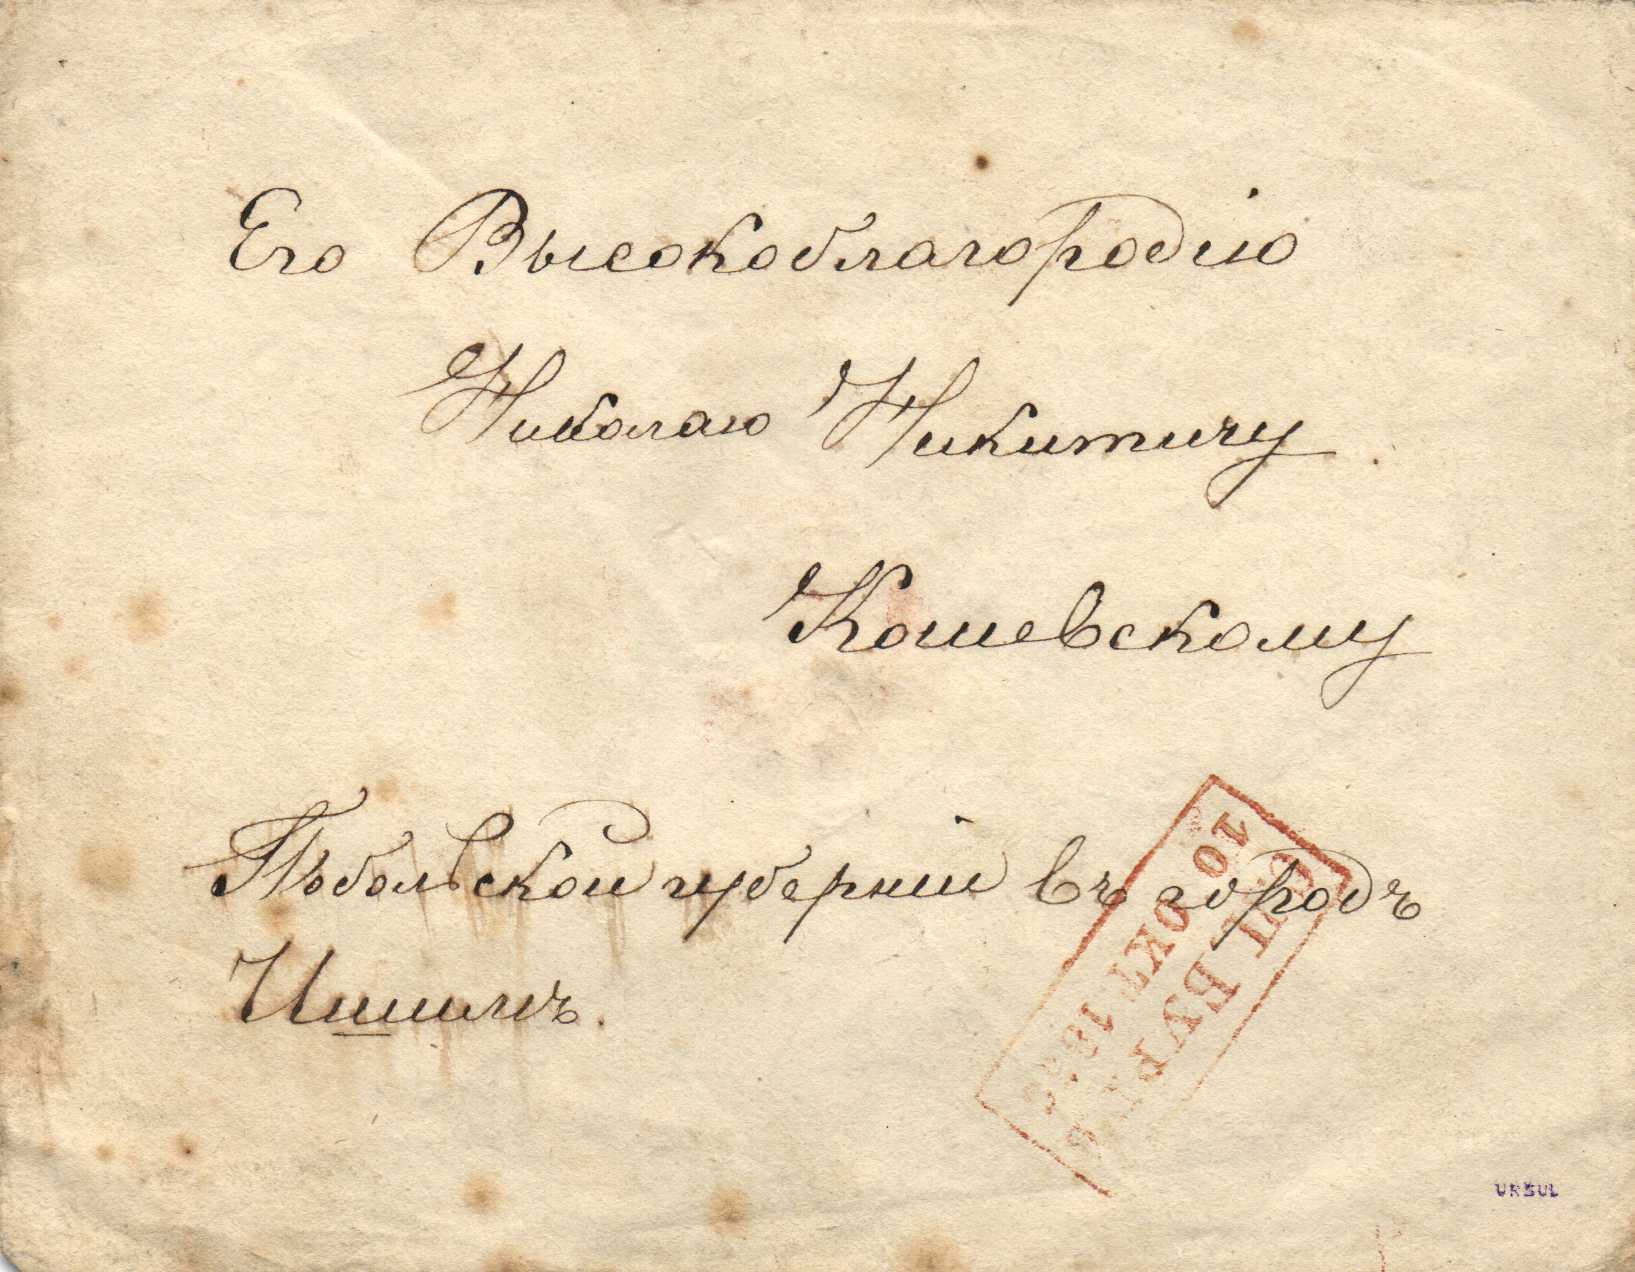 Его Высокоблагородію
Николаю Никитичу
Кошевскому
Тобольской губерніи въ городъ
Ишимъ.
С.П.БУРГЪ
10 ОКТ
URSUL